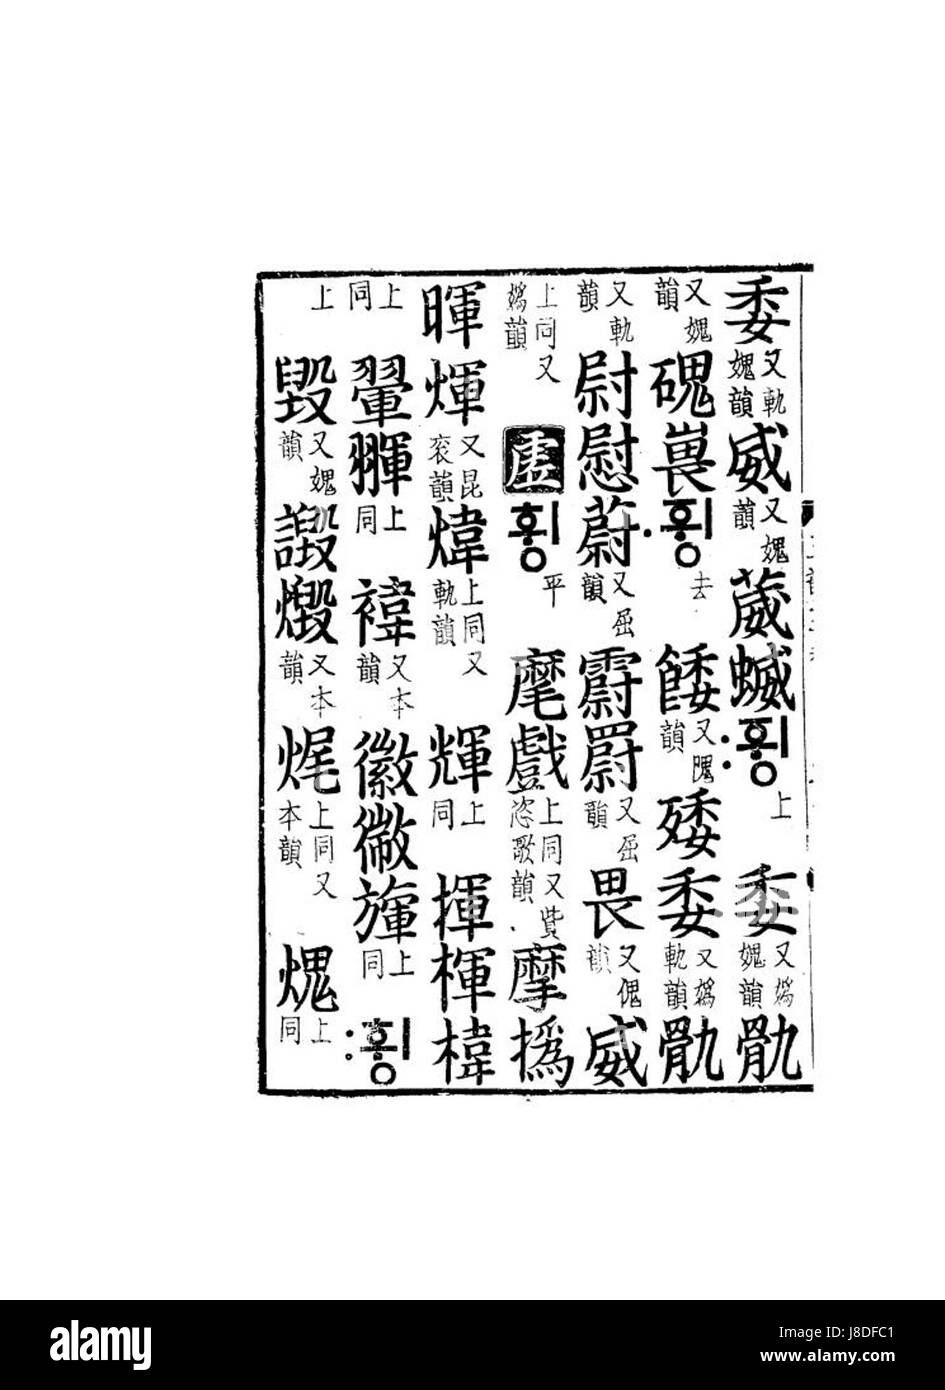 委又軌媿韻威又媿韻葳蝛上委又嬀媿韻骩
又媿韻磈嵔去餧又媿韻委又嬀軌韻骩
又軌韻尉慰蔚又屈韻霨罻又屈韻畏又傀韻威
上同又嬀韻虛平麾戲上同又貲恣歌韻摩撝
暉煇又昆衮韻煒上同又軌韻輝上同揮楎椲
上同翬上同褘又本韻徽上同
上毀又媿韻譭燬又本韻上同又本韻上同
alamy
alamy
Image ID: J8DFC1
www.alamy.com